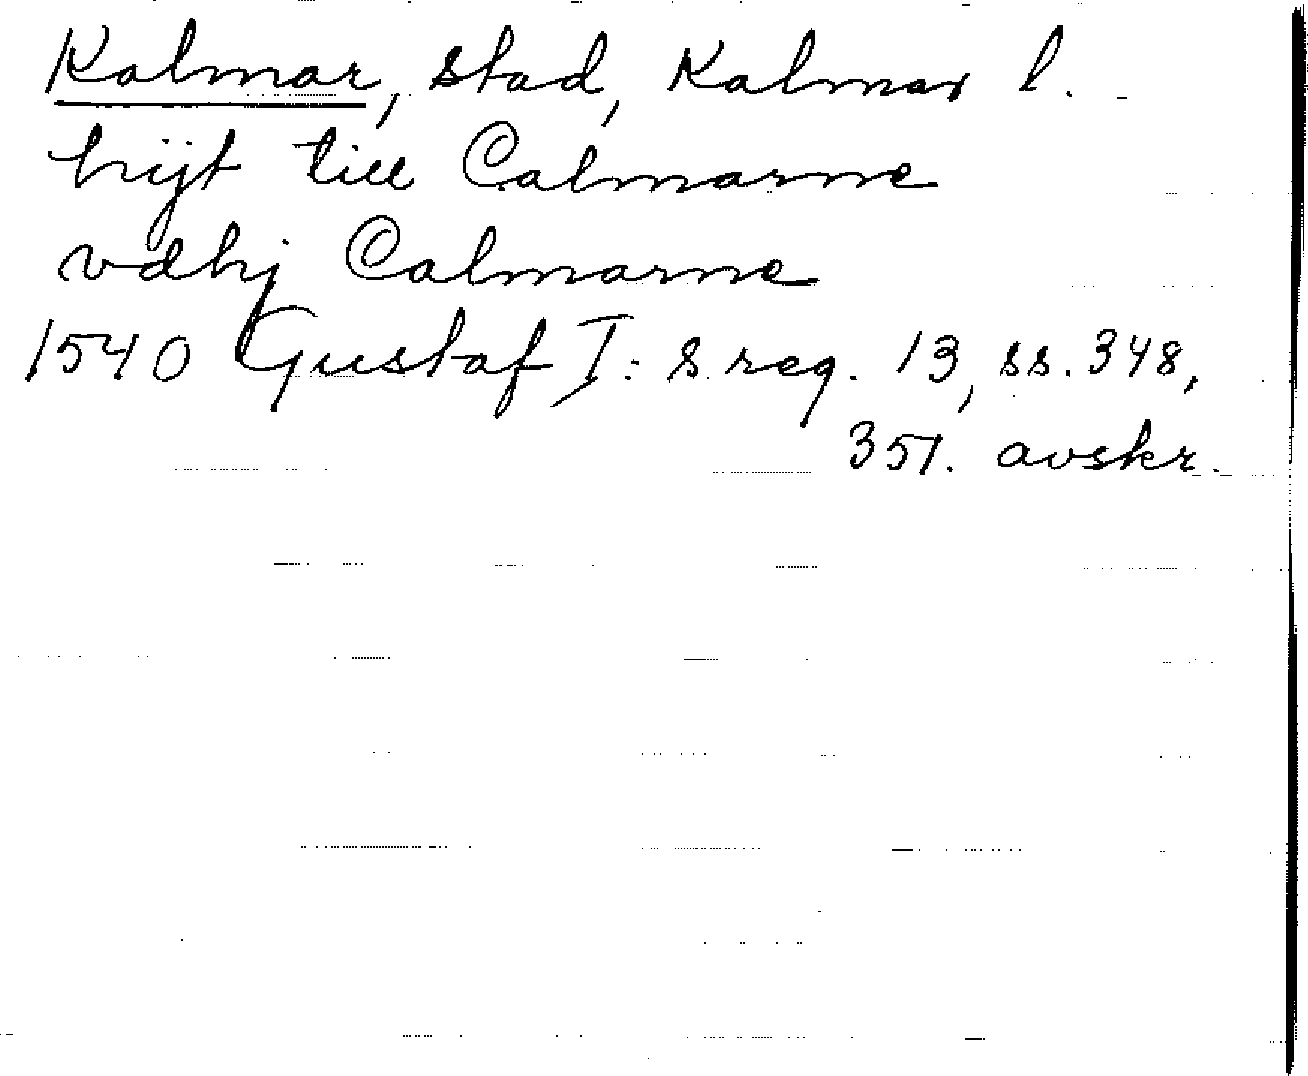 Kalmar, stad, Kalmar l.
hijt till Calmarne
vdhj Calmarne
1540 Gustaf I:s reg. 13, ss. 348,
351. avskr.